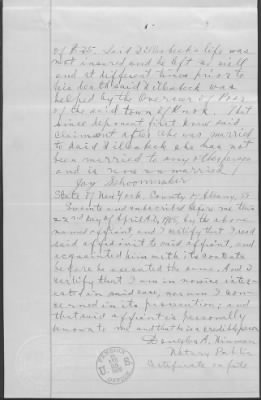 of $25. Said Dillabeck's life was
not insured and he left no will
and at different times prior to
his death said Dillabeck was
helped by the Overseer of Poor
of the said town of Knox. That
since deponent first knew said
claimant after she was married
to said Dillabeck she has not
been married to any other person
and is now unmarried
Jay Schoonmaker
State of New York County of Albany, SS
Sworn to and subscribed before me this
22nd day of April by the above
named affiant, and I certify that I read
said affidavit to said affiant, and
acquainted him with its contents
before he executed the same. And I
certify that I am in no wise inter-
ested in said case, nor am I con-
cerned in its prosecution; and
that said affiant is personally
known to me and that he is a credible person
Hinman
Notary Public
Certificate on file
U.S. PENSION OFFICE